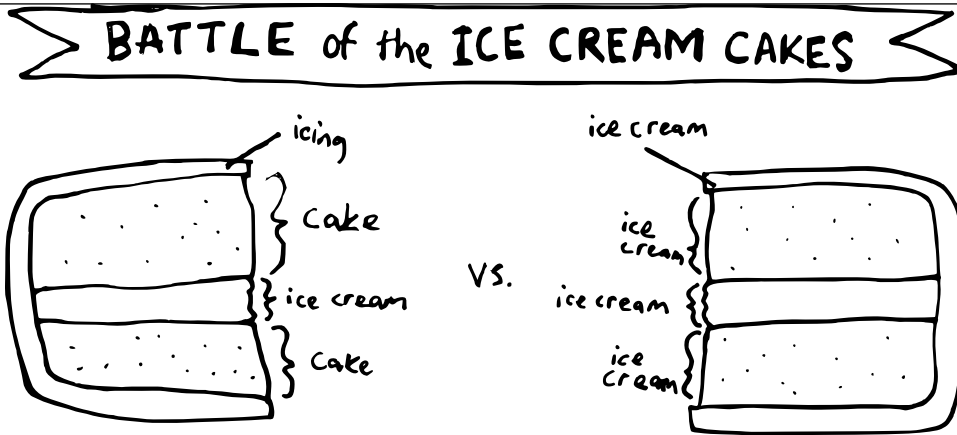 BATTLE of the ICE CREAM CAKES
icing
Cake
ice cream
Cake
vs.
ice cream
ice
cream
ice cream
ice
cream